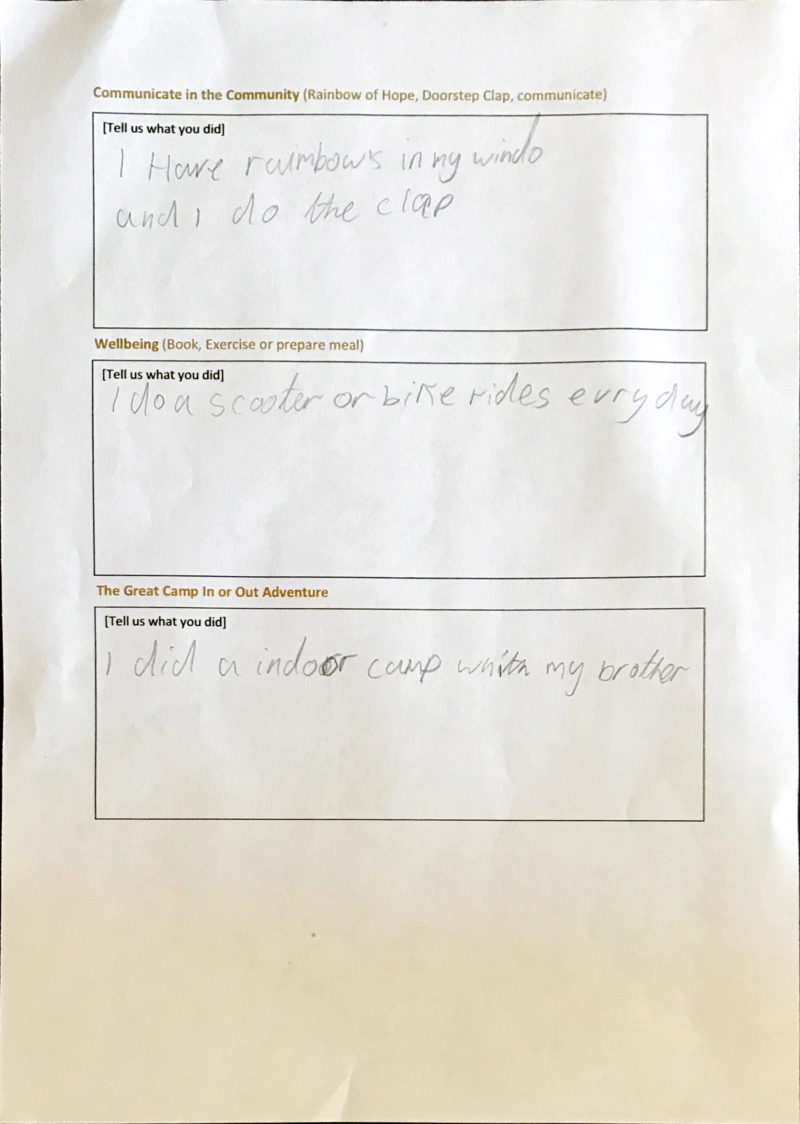 Communicate in the Community (Rainbow of Hope, Doorstep Clap, communicate)
[Tell us what you did]
I Have raimbows in my windo
and I do the clap
Wellbeing (Book, Exercise or prepare meal)
[Tell us what you did]
I do a scooter or bike rides evry day
The Great Camp In or Out Adventure
[Tell us what you did]
I did a indoor camp whith my brother